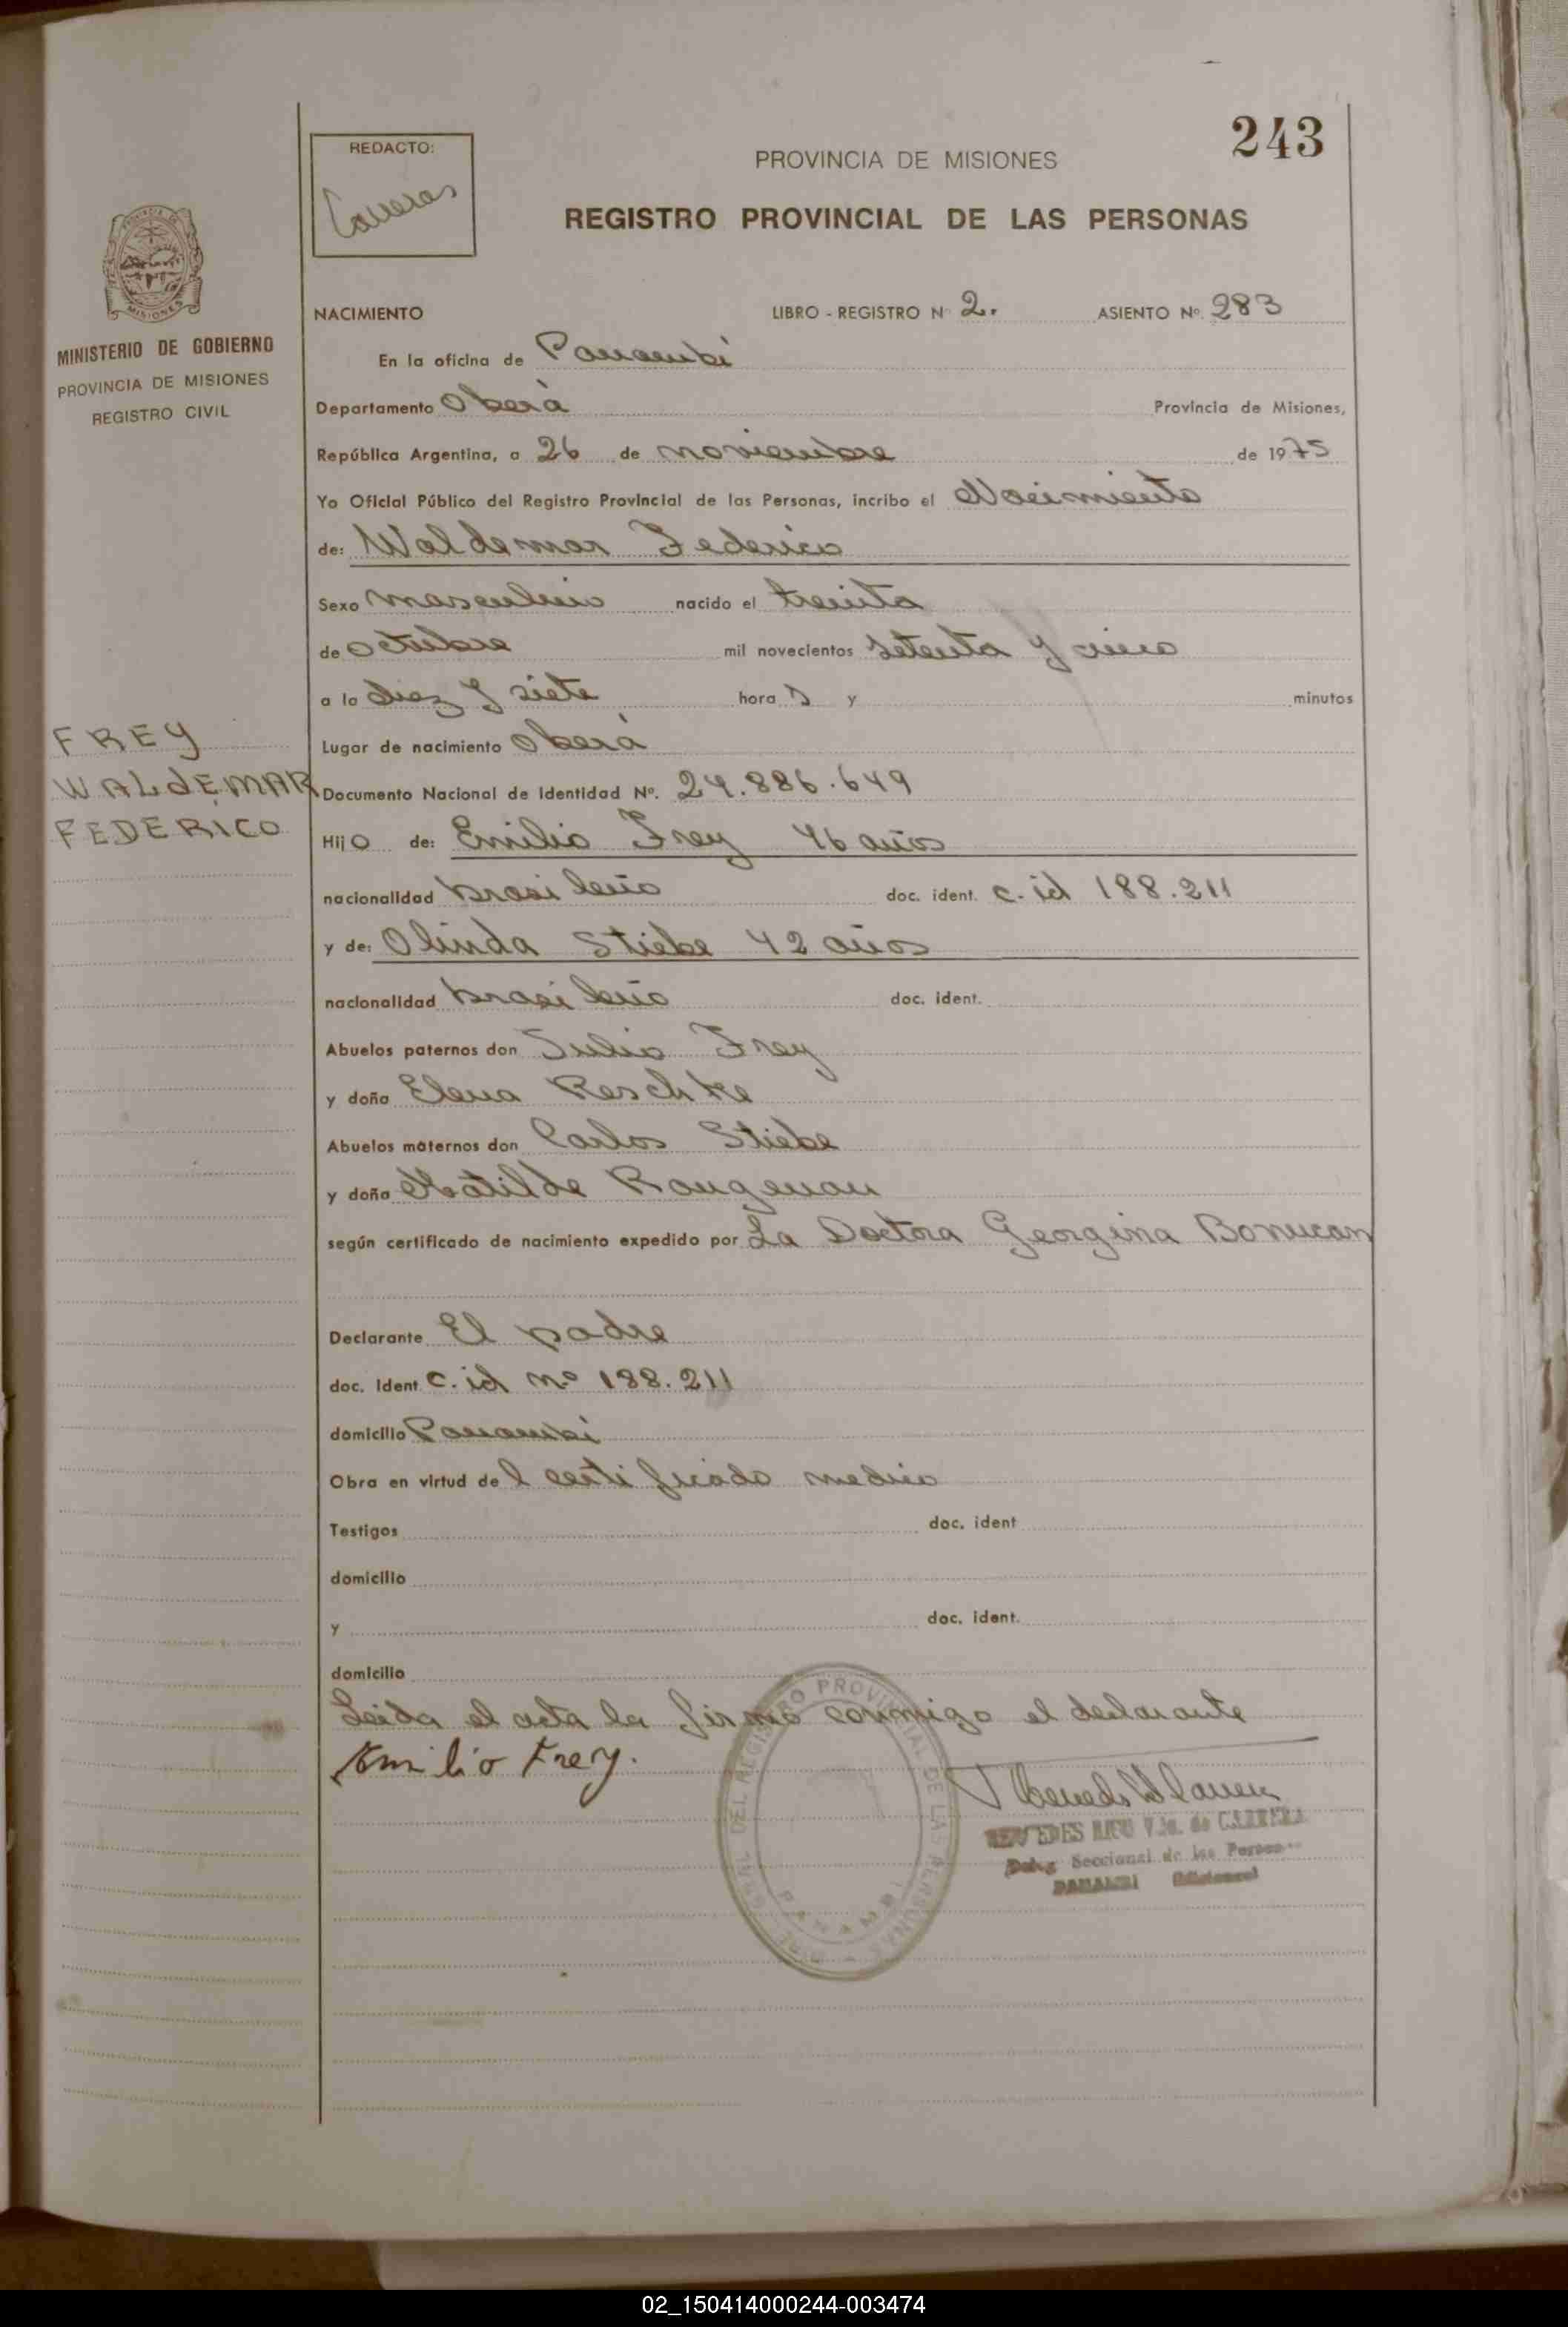 243
REDACTO:
Carreras
PROVINCIA DE MISIONES
REGISTRO PROVINCIAL DE LAS PERSONAS
MISIONES
MINISTERIO DE GOBIERNO
PROVINCIA DE MISIONES
REGISTRO CIVIL
NACIMIENTO LIBRO - REGISTRO N° 2. ASIENTO Nº. 283
En la oficina de Panambi
Departamento Oberà Provincia de Misiones,
República Argentina, a 26 de noviembre de 1975
Yo Oficial Público del Registro Provincial de las Personas, incribo el Nacimiento
de: Waldemar Federico
Sexo masculino nacido el treinta
de octubre mil novecientos setenta y cinco
a la diez y siete hora s y minutos
Lugar de nacimiento Oberà
FREY
WALdEMAR
FEDERICO
Documento Nacional de Identidad Nº. 24.886.649
Hijo de: Emilio Frey 46 años
nacionalidad brasileño doc. ident. c. id 188.211
y de: Olinda Stiebe 42 años
nacionalidad brasileño doc. ident.
Abuelos paternos don Julio Frey
y doña Elena Reschke
Abuelos maternos don Carlos Stiebe
y doña Matilde
según certificado de nacimiento expedido por La Doctora Georgina
Declarante El padre
doc. ident c. id nº 188.211
domicilio Panambi
Obra en virtud del certificado medico
Testigos doc. ident
domicilio
y doc. ident.
domicilio
Leida el acta la firmo conmigo el declarante
Emilio Frey.
DEL REGISTRO PROVINCIAL DE LAS PERSONAS
PANAMBI
MERCEDES Vda. de CARRERA
Deleg. Seccional de las Personas
PANAMBI (Misiones)
02_150414000244-003474